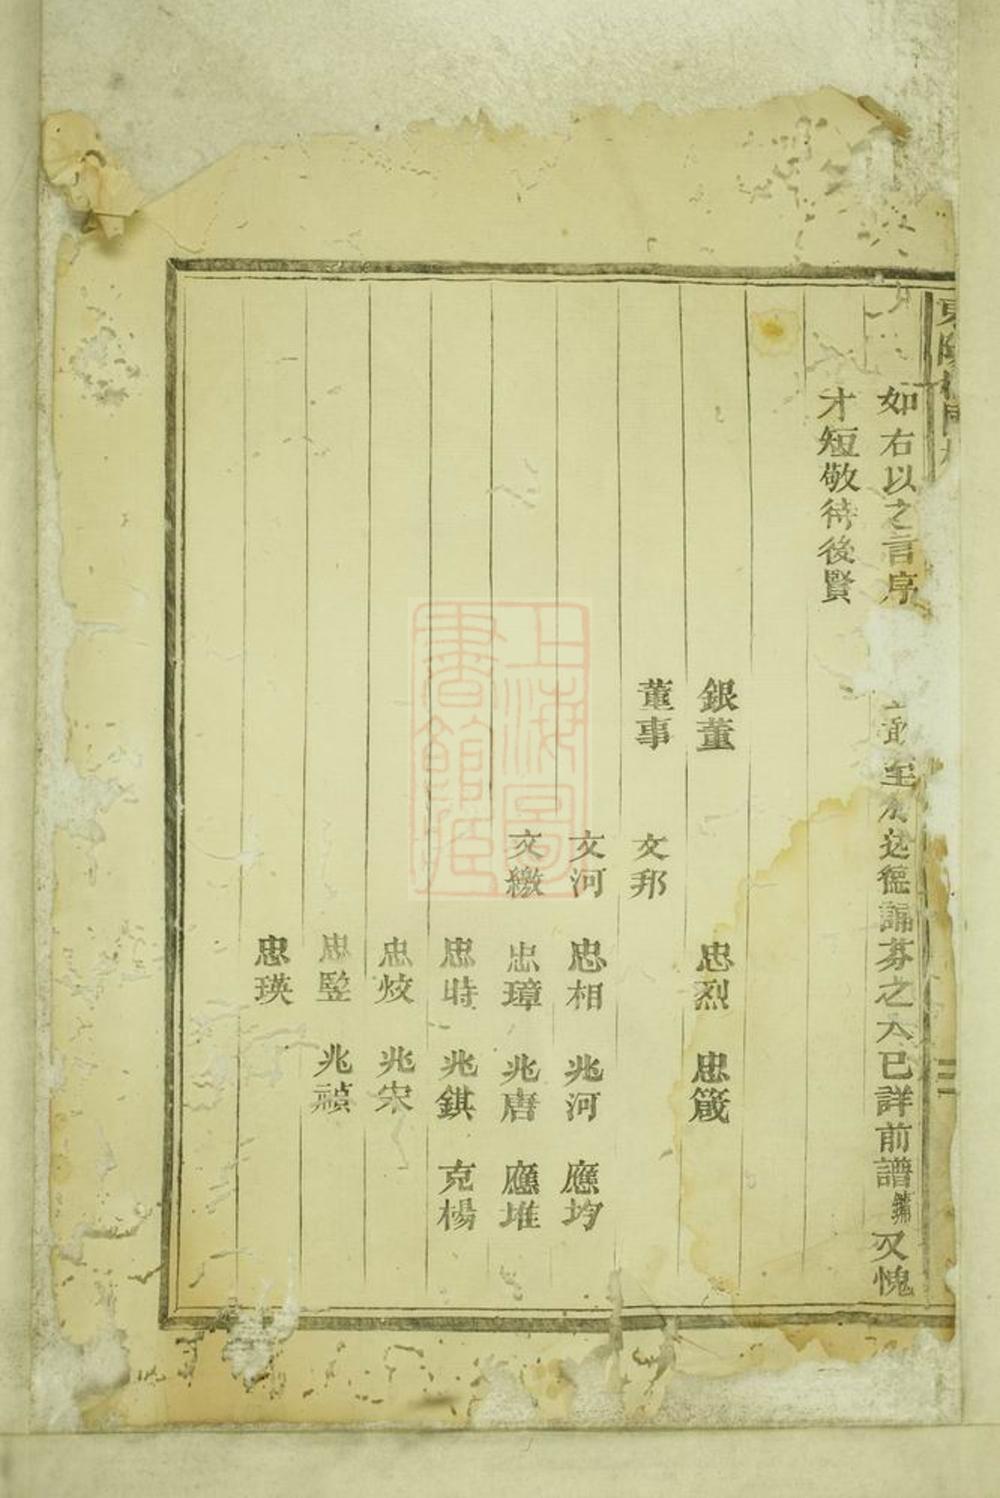 如右以之言序 至於述德誦芬之人已詳前譜鏞又愧
才短敬待後賢
銀董 忠烈 忠箴
董事 文邦
文河 忠相 兆河 應均
文繳 忠璋 兆唐 應堆
忠時 兆錤 克楊
忠炆 兆宋
忠堅 兆禎
忠瑛
上海圖書館藏